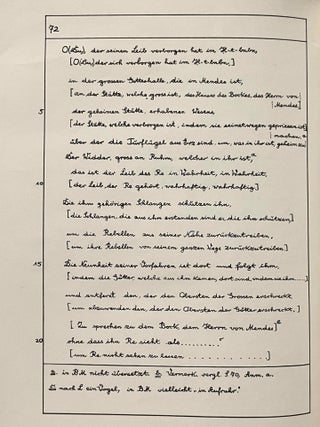 72
O(Du), der seinen Leib verborgen hat im H-t-bnbn,
[O(Du) der sich verborgen hat im H-t-bnbn,]
in der grossen Götterhalle, die in Mendes ist,
[an der Stätte, welche gross ist, des Hauses des Bockes, des Herrn von Mendes]
5 der geheimen Stätte, erhabenen Wesens,
[der Stätte, welche verborgen ist, indem sie seinetwegen gepriesen ist]
über der die Türflügel aus Erz sind, um, was in ihr ist, geheim zu machen,
Der Widder, gross an Ruhm, welcher in ihr ist,a
das ist der Leib des Re in Wahrheit, in Wahrheit.
10 [der Leib, des Re gehört, wahrhaftig, wahrhaftig]
Die ihm gehörigen Schlangen schützen ihn,
[die Schlangen, die aus ihm erstanden sind, sie die ihn schützen]
um die Rebellen aus seiner Nähe zurückzutreiben,
[um ihre Rebellen von seinem ganzen Wege zurückzutreiben]
15 Die Neunheit seiner Vorfahren ist dort und folgt ihm,
[indem die Götter, welche aus ihm kamen, dort sind, indem sie ihm ....]
und entfernt den, der den Obersten der Grossen erschreckt
[um abzuwenden den, der den Obersten der Götter erschreckt.]
[Zu sprechen zu dem Bock, dem Herrn von Mendes]b
20 ohne dass ihn Re sieht als ..........c
[um Re nicht sehen zu lassen . . . . . . . . . . .]
a. in BM nicht übersetzt. b. Vermerk vergl. S 70, Anm. a.
c. nach L ein Vogel, in BM vielleicht „in Aufruhr".